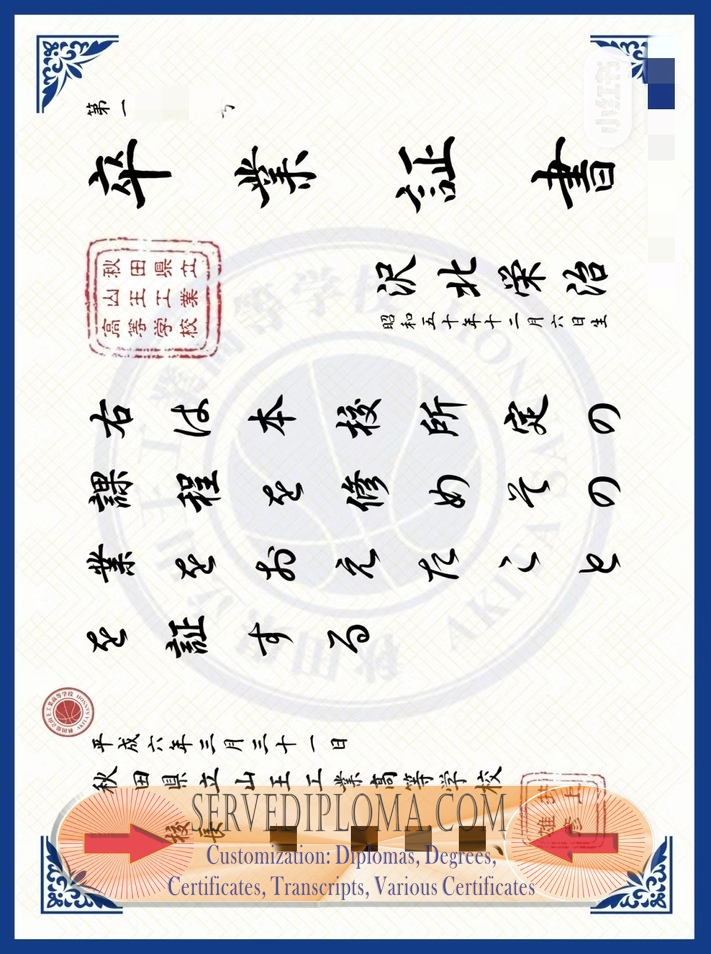 小红书
第一
卒業証書
秋田県立
山王工業
高等学校
沢北栄治
昭和五十年十二月六日生
右は本校所定の
課程を修めその
業をおえたこと
を証する
平成六年三月三十一日
秋田県立山王工業高等学校
校長
SERVEDIPLOMA.COM
Customization: Diplomas, Degrees,
Certificates, Transcripts, Various Certificates